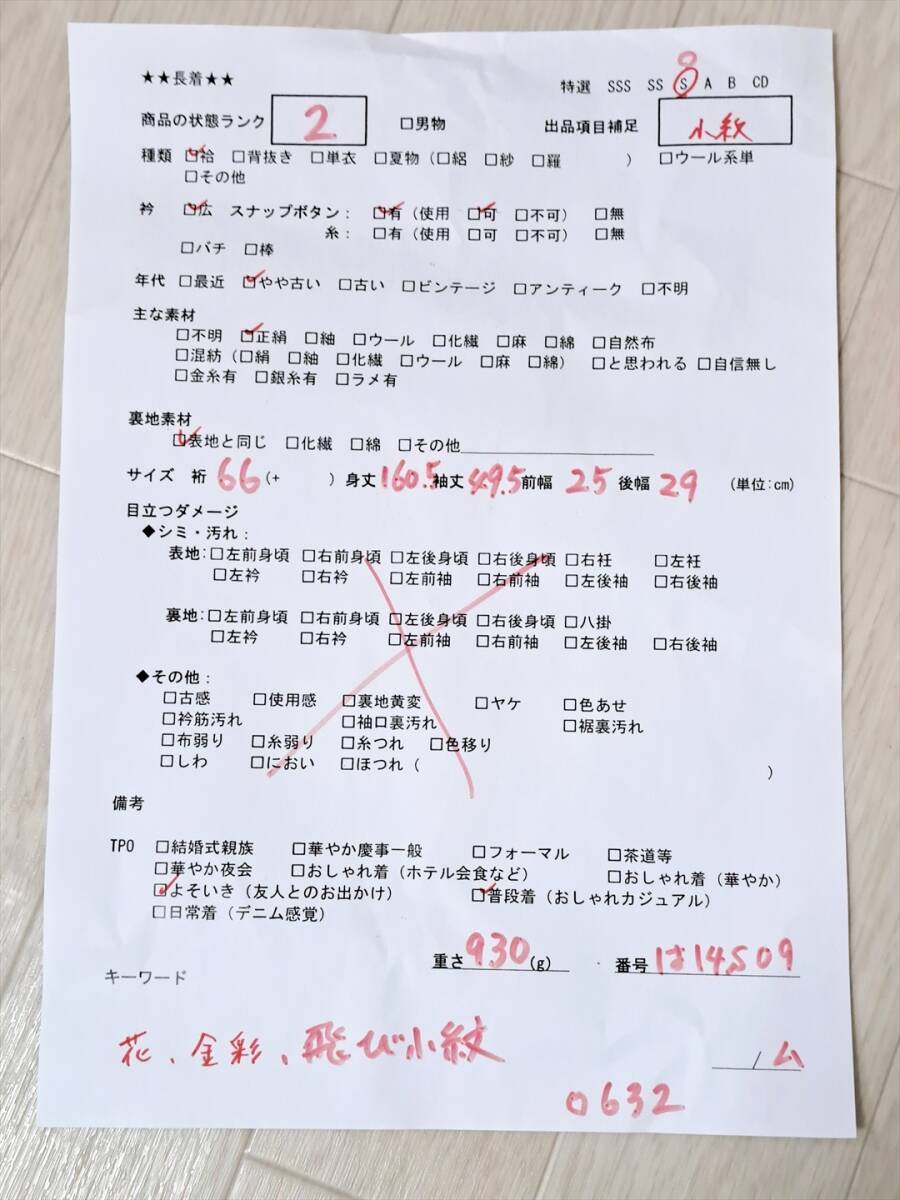 ★★長着★★
特選 SSS SS S A B CD
商品の状態ランク 2 □男物 出品項目補足 小紋
種類 ☑袷 □背抜き □単衣 □夏物(□絽 □紗 □羅 ) □ウール系単
□その他
衿 ☑広 スナップボタン: ☑有(使用 ☑可 □不可) □無
糸:□有(使用 □可 □不可) □無
□バチ □棒
年代 □最近 ☑やや古い □古い □ビンテージ □アンティーク □不明
主な素材
□不明 ☑正絹 □紬 □ウール □化繊 □麻 □綿 □自然布
□混紡(□絹 □紬 □化繊 □ウール □麻 □綿) □と思われる □自信無し
□金糸有 □銀糸有 □ラメ有
裏地素材
☑表地と同じ □化繊 □綿 □その他
サイズ 裄 66 (+ ) 身丈 160.5 袖丈 49.5 前幅 25 後幅 29 (単位:cm)
目立つダメージ
◆シミ・汚れ:
表地:□左前身頃 □右前身頃 □左後身頃 □右後身頃 □右衽 □左衽
□左衿 □右衿 □左前袖 □右前袖 □左後袖 □右後袖
裏地:□左前身頃 □右前身頃 □左後身頃 □右後身頃 □八掛
□左衿 □右衿 □左前袖 □右前袖 □左後袖 □右後袖
◆その他:
□古感 □使用感 □裏地黄変 □ヤケ □色あせ
□衿筋汚れ □袖口裏汚れ □裾裏汚れ
□布弱り □糸弱り □糸つれ □色移り
□しわ □におい □ほつれ( )
備考
TPO □結婚式親族 □華やか慶事一般 □フォーマル □茶道等
□華やか夜会 □おしゃれ着(ホテル会食など) □おしゃれ着(華やか)
☑よそいき(友人とのお出かけ) ☑普段着(おしゃれカジュアル)
□日常着(デニム感覚)
重さ 930 (g) 番号 は14509
キーワード
花、金彩、飛び小紋
/ム
0632